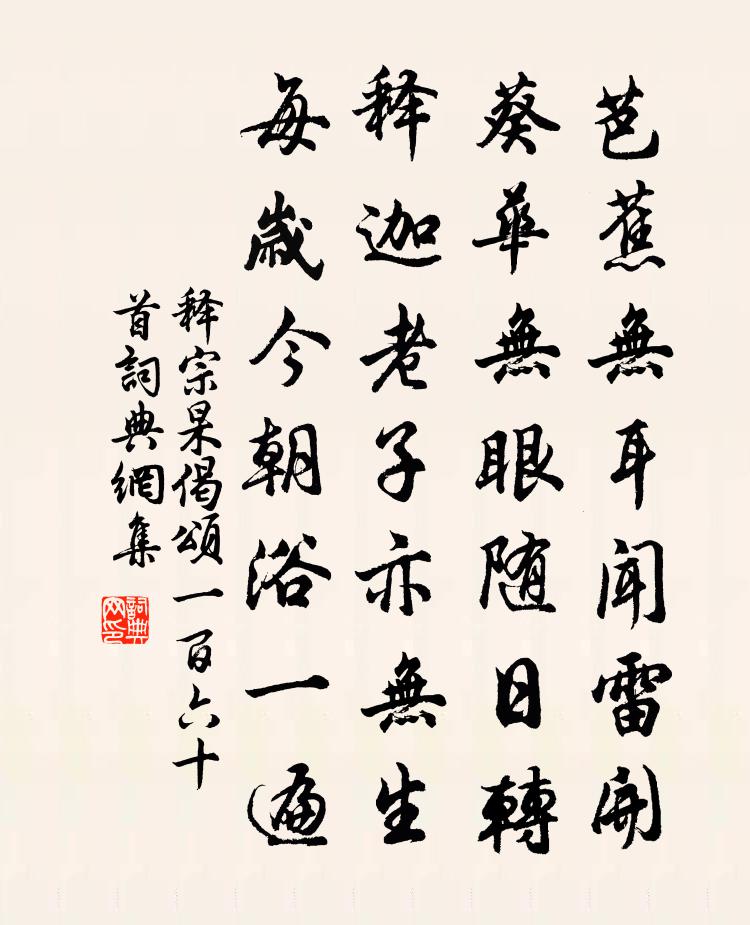 芭蕉無耳聞雷開
葵華無眼随日轉
释迦老子亦無生
每歲今朝浴一遍
释宗杲偈頌一百六十
首詞典網集
詞典网印